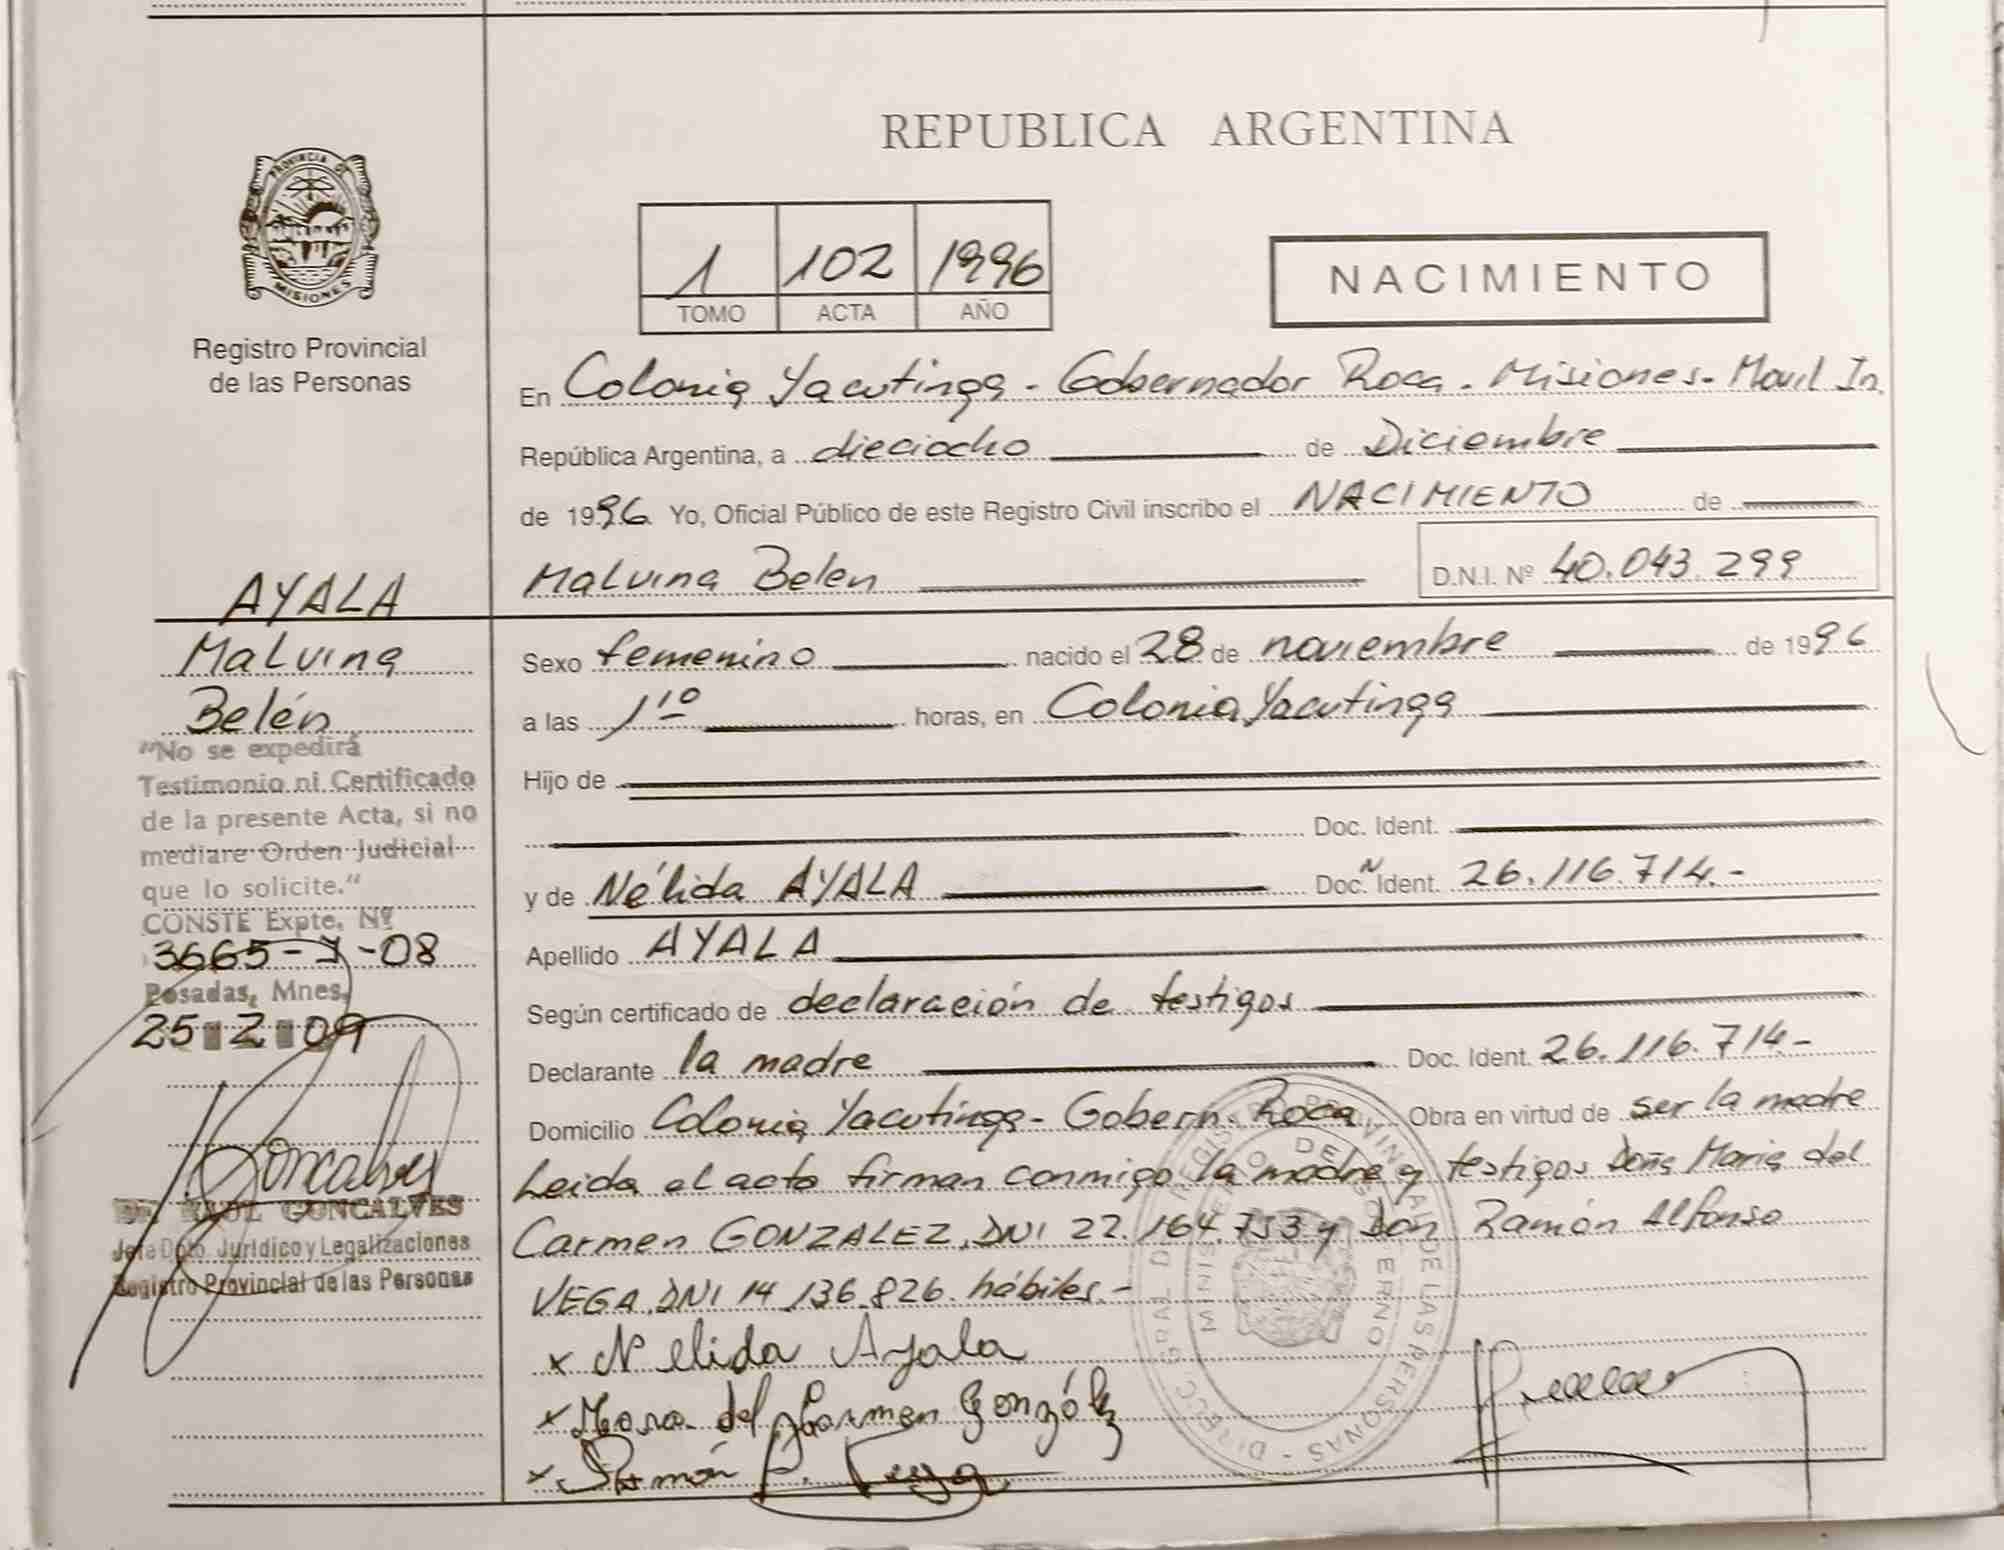 REPUBLICA ARGENTINA
PROVINCIA DE
MISIONES
Registro Provincial
de las Personas
1 102 1996
TOMO ACTA AÑO
NACIMIENTO
En Colonia Yacutinga - Gobernador Roca - Misiones - Movil In.
República Argentina, a dieciocho de Diciembre
de 1996 Yo, Oficial Público de este Registro Civil inscribo el NACIMIENTO de
Malvina Belen D.N.I. Nº 40.043.299
AYALA
Malvina
Belén
"No se expedirá
Testimonio ni Certificado
de la presente Acta, si no
mediare Orden Judicial
que lo solicite."
CONSTE Expte. Nº
3665- -08
Posadas, Mnes.
25 2 09
Goncalves
Dr. RAUL GONCALVES
Jefe Dpto. Jurídico y Legalizaciones
Registro Provincial de las Personas
Sexo femenino nacido el 28 de noviembre de 1996
a las 1 10 horas, en Colonia Yacutinga
Hijo de
Doc. Ident.
y de Nélida AYALA Doc. Ident. 26.116.714.-
Apellido AYALA
Según certificado de declaración de testigos
Declarante la madre Doc. Ident. 26.116.714-
Domicilio Colonia Yacutinga - Gobern. Roca Obra en virtud de ser la madre
Leida el acto firman conmigo la madre y testigos Doña Maria del
Carmen GONZALEZ, DNI 22.164.753 y Don Ramón Alfonso
VEGA DNI 14 136.826. hábiles.-
x Nelida Ayala
x Maria del Carmen González
x Ramón A. Vega
DIRECC GRAL DEL REGISTRO PROVINCIAL DE LAS PERSONAS
MINISTERIO DE GOBIERNO